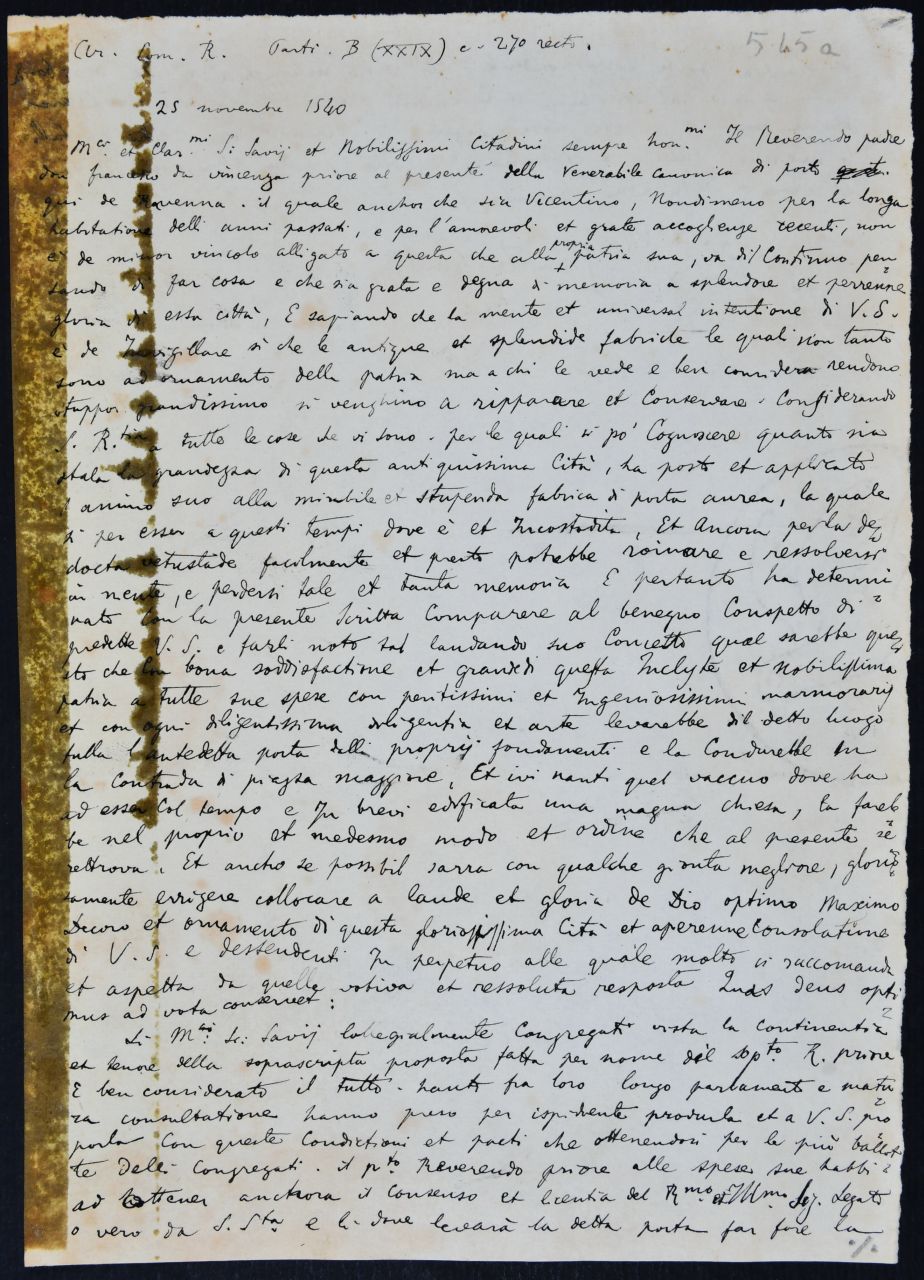 Com. R. Parti. B (XXIX) c. 270 recto.
545a
25 novembre 1540
Mci. et Clar.mi Si Savij et Nobilissimi Citadini sempre hon.mi Il Reverendo padre
don francesco da vincenza priore al presente della Venerabile Canonica di porto
qui de Ravenna. il quale anchor che sia Vicentino, Nondimeno per la longa
habitatione delli anni passati, e per l'amorevoli et grate accoglienze recenti, non
è de minor vincolo alligato a questa che alla propria patria sua, va dil Continuo pen
sando di far cosa e che sia grata e degna di memoria a splendore et perrenne
gloria di essa città, E sapiando che la mente et universal intentione di V. S.
è de Invigillare si che le antique et splendide fabriche le quali non tanto
sono ad ornamento della patria ma a chi le vede e ben considera rendono
stuppor grandissimo si venghino a ripparare et Conservare. Considerando
S. R.tia a tutte le cose che vi sono. per le quali si pó Cognoscere quanto sia
stata la grandezza di questa antiquissima Cità, ha posto et applicato
l'animo suo alla mirabile et stupenda fabrica di porta aurea, la quale
si per esser a questi tempi dove è et Incostodita, Et Ancora per la de
docta vetustade facilmente et presto potrebbe roinare e ressolversi
in niente, e perdersi tale et tanta memoria E pertanto ha determi
nato con la presente Scritta Comparere al benegno Conspetto di
predette V. S. e farli noto tal laudando suo Concetto qual sarebbe que
sto che Con bona soddisfactione et grandi questa Inclyta et nobilissima
patria a tutte sue spese con peritissimi et Ingeniosissimi marmorarij
et con ogni diligentissima diligentia et arte levarebbe dil detto luogo
tutta l'antedetta porta dalli proprij fondamenti e la Condurebbe in
la Contrada di piazza maggiore, Et ivi nanti quel vaccuo dove ha
ad esser Col tempo e In brevi edificata una magna chiesa, la fareb
be nel proprio et medesmo modo et ordine che al presente se
rettrova. Et ancho se possibil sarra con qualche gionta megliore, glorio
samente errigere collocare a laude et gloria de Dio optimo Maximo
Decoro et ornamento di questa gloriosissima Cità et aperenne Consolatione
di V. S. e dessendenti In perpetuo alle quale molto si raccomanda
et aspetta da quelle votiva et ressoluta resposta Quas deus opti
mus ad vota conservet:
Li Mci Si: Savij Collegialmente Congregati vista la continentia
et tenore della soprascripta proposta fatta per nome dil sopto R. priore
E ben considerato il tutto. hauto fra loro longo parlamento e matu
ra consultatione hanno preso per ispediente produrla et a V. S. pro
porla Con queste Condictioni et pacti che ottenendosi per la più ballot
te Delli Congregati. il pto Reverendo priore alle spese sue habbi
ad ottener anchora il Consenso et licentia del Rmo et Illmo Sig. Legato
o vero da S. Sta e li dove levarà la detta porta far fare la
./.